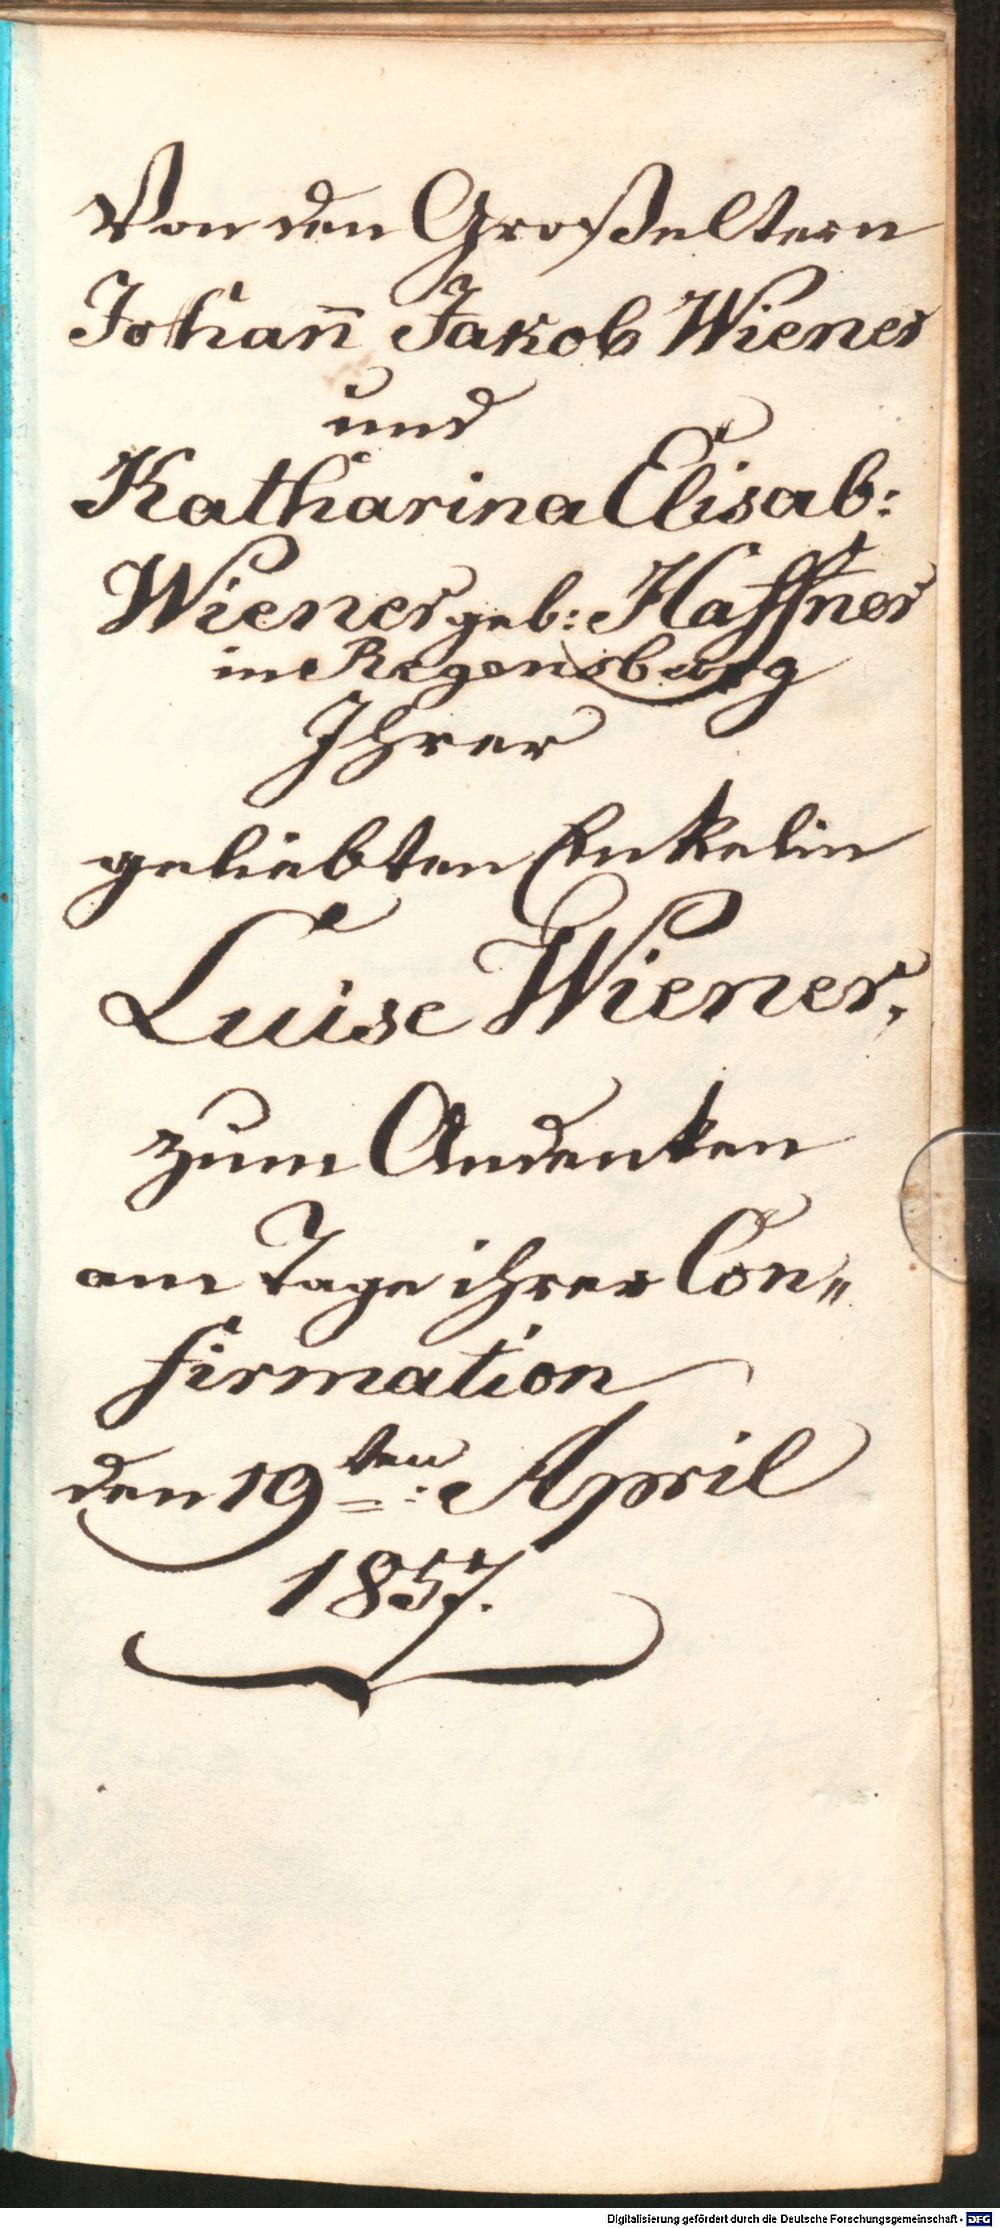 Von den Großeltern
Johan̄ Jakob Wiener
und
Katharina Elisab:
Wiener geb: Haffner
in Regensburg
Ihrer
geliebten Enkelin
Luise Wiener,
zum Andenken
am Tage ihrer Con„
firmation
den 19ten: April
1857.
Digitalisierung gefördert durch die Deutsche Forschungsgemeinschaft - DFG